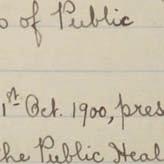 s of Public
1st Oct. 1900, pres
the Public Heal